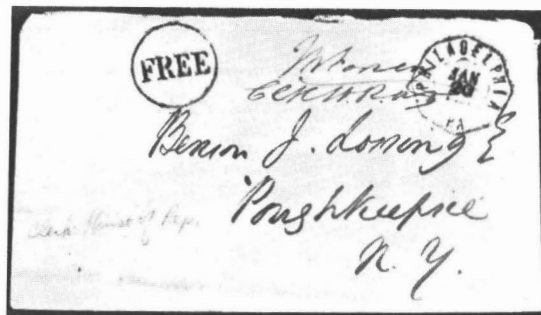 FREE
PHILADELPHIA
JAN
PA
Clk H. R. U.S.
Benson J. Lossing
Poughkeepsie
N. Y.
Clerk House of Rep.